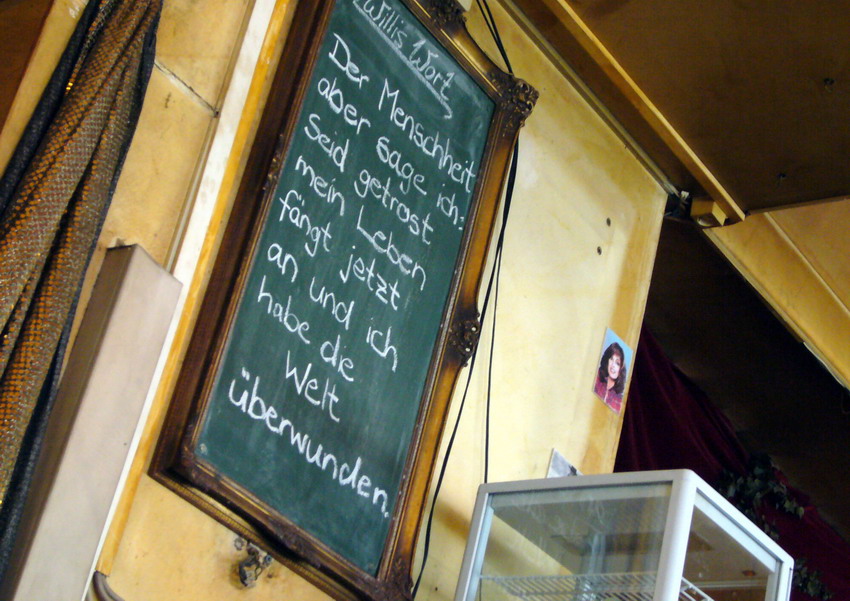 Willis Wort
Der Menschheit
aber sage ich:
Seid getrost
mein Leben
fängt jetzt
an und ich
habe die
Welt
überwunden.